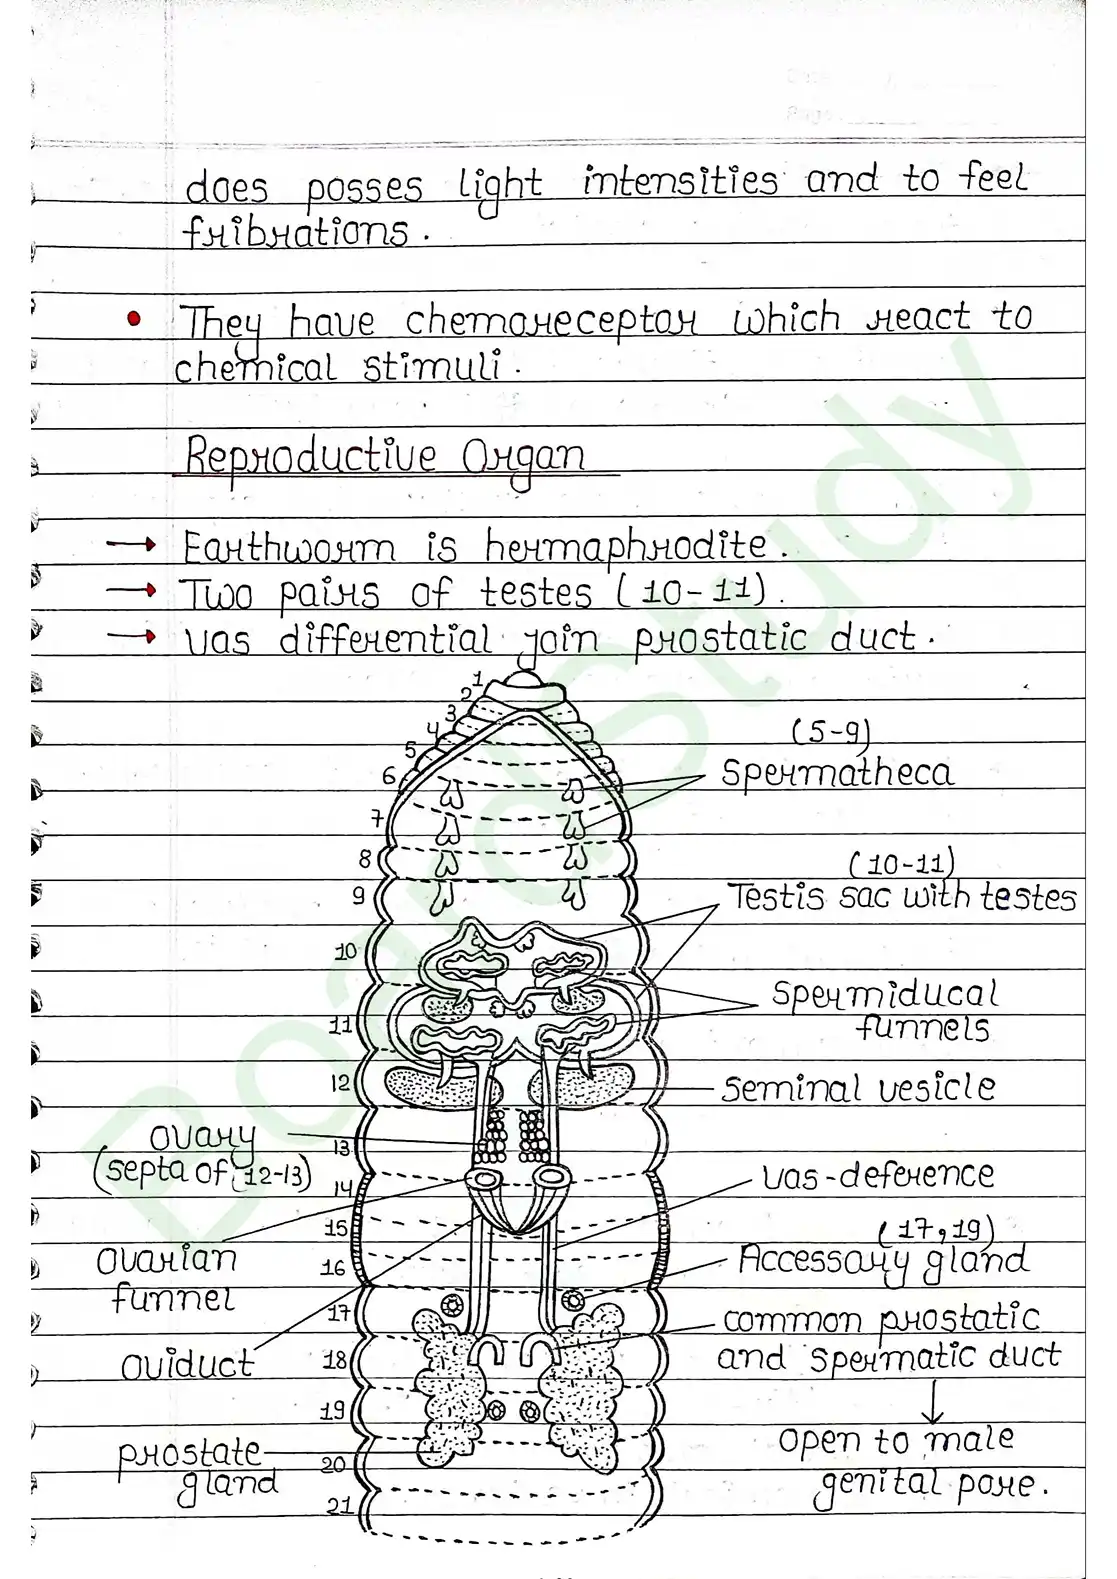 does posses light intensities and to feel
fribrations.
• They have chemoreceptor which react to
chemical stimuli.
Reproductive Organ
→ Earthworm is hermaphrodite.
→ Two pairs of testes (10-11).
→ Vas differential join prostatic duct.
1
2
3
4
5
6
7
8
9
10
11
12
13
14
15
16
17
18
19
20
21
(5-9)
Spermatheca
(10-11)
Testis sac with testes
Spermiducal
funnels
Seminal vesicle
ovary
(septa of 12-13)
vas-deference
(17,19)
Accessory gland
ovarian
funnel
common prostatic
and spermatic duct
oviduct
open to male
genital pore.
prostate
gland
BoardStudy